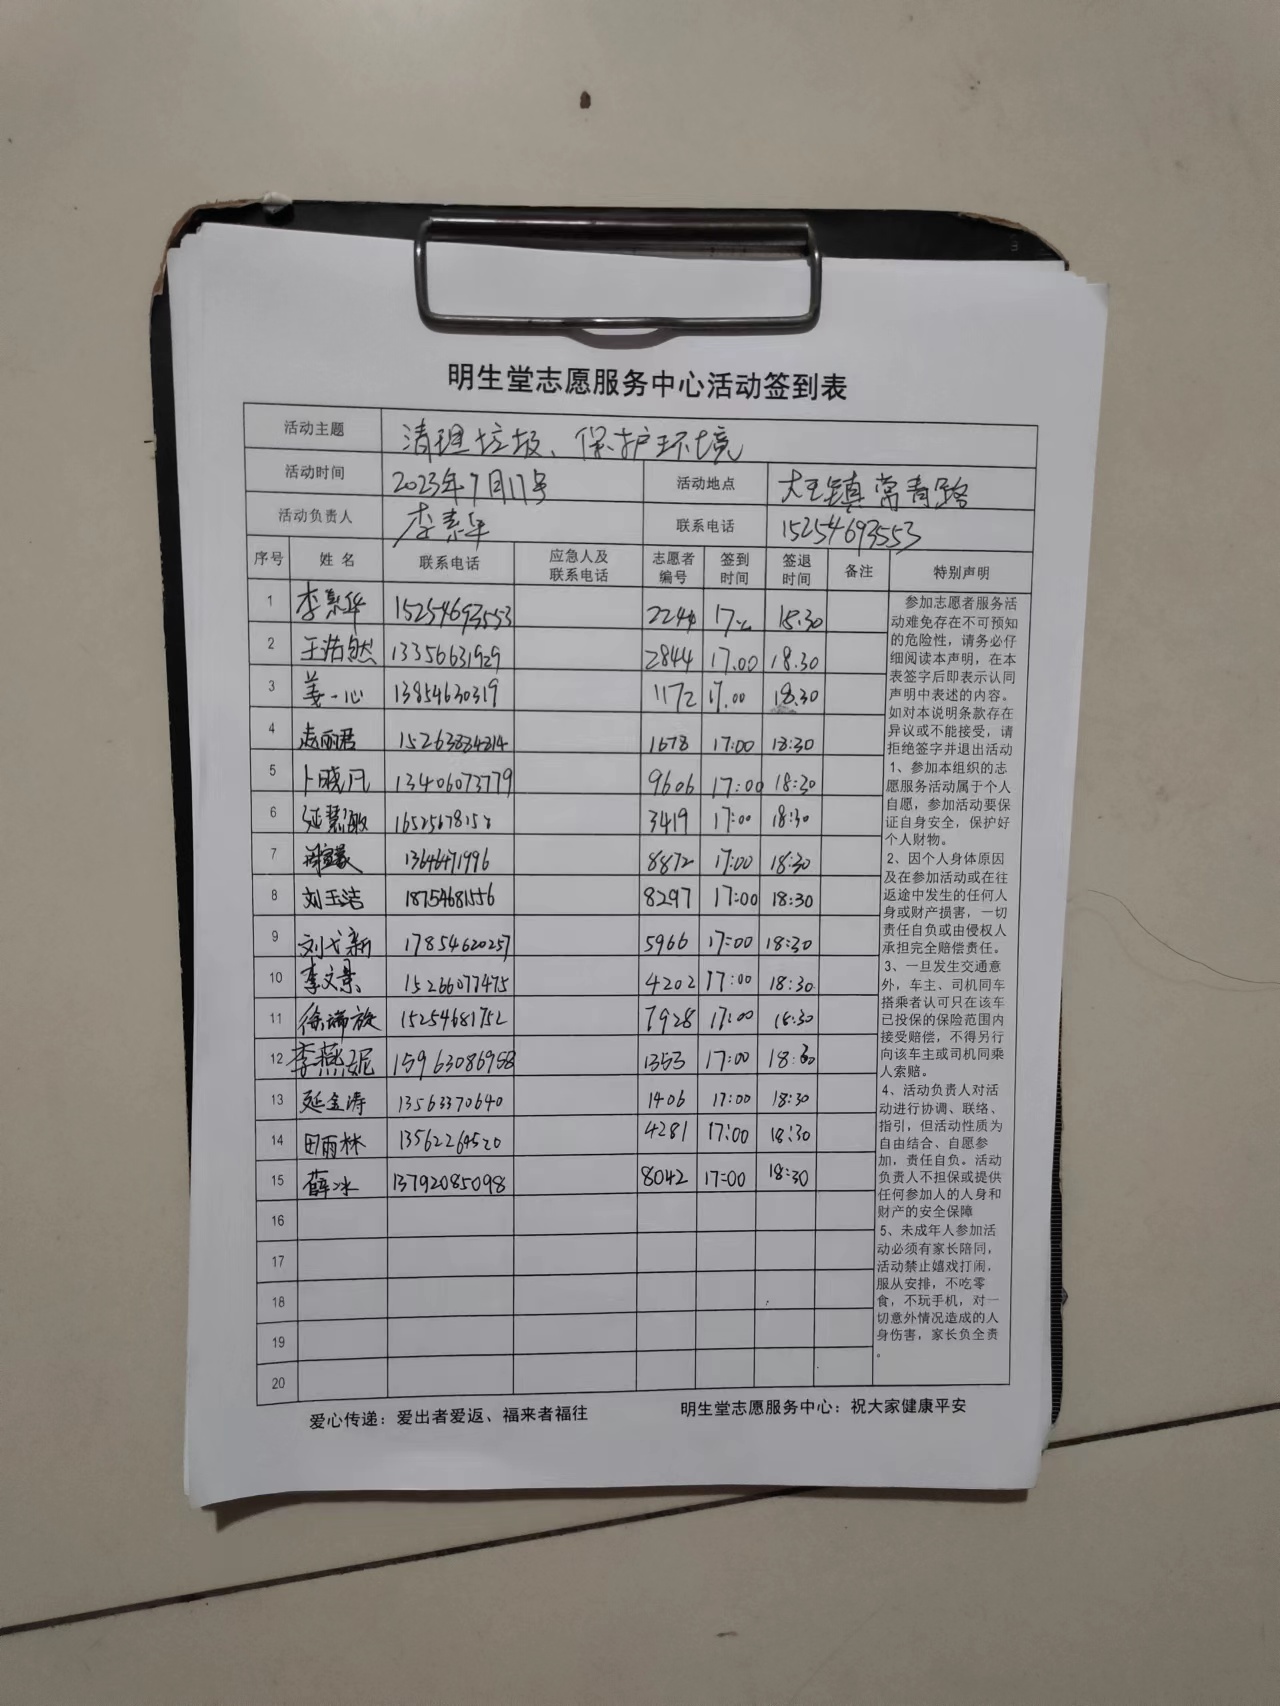 明生堂志愿服务中心活动签到表
活动主题 清理垃圾、保护环境
活动时间 2023年7月17号 活动地点 大王镇常青路
活动负责人 李素华 联系电话 15254693553
序号 姓名 联系电话 应急人及联系电话 志愿者编号 签到时间 签退时间 备注 特别声明
1 李素华 15254693553 2244 18.30
2 王浩然 13356631929 2844 17.00 18.30
3 姜一心 13854630319 1172 17.00 18.30
4 志丽君 15263834814 1678 17:00 18:30
5 卜晓凡 13406073779 9606 17:00 18:30
6 延慧敏 3419 17:00 18:30
7 13646471996 8872 17:00 18:30
8 刘玉洁 18754681556 8297 17:00 18:30
9 刘戈新 17854620257 5966 17:00 18:30
10 李文景 15266077475 4202 17:00 18:30
11 徐瑞旋 15254681752 7928 17:00 18:30
12 李燕妮 15963086958 1353 17:00 18:30
13 延金涛 13563370640 1406 17:00 18:30
14 田雨林 13562264520 4281 17:00 18:30
15 薛冰 13792085098 8042 17:00 18:30
16
17
18
19
20
参加志愿者服务活
动难免存在不可预知
的危险性，请务必仔
细阅读本声明，在本
表签字后即表示认同
声明中表述的内容。
如对本说明条款存在
异议或不能接受，请
拒绝签字并退出活动
1、参加本组织的志
愿服务活动属于个人
自愿，参加活动要保
证自身安全，保护好
个人财物。
2、因个人身体原因
及在参加活动或在往
返途中发生的任何人
身或财产损害，一切
责任自负或由侵权人
承担完全赔偿责任。
3、一旦发生交通意
外，车主、司机同车
搭乘者认可只在该车
已投保的保险范围内
接受赔偿，不得另行
向该车主或司机同乘
人索赔。
4、活动负责人对活
动进行协调、联络、
指引，但活动性质为
自由结合、自愿参
加，责任自负。活动
负责人不担保或提供
任何参加人的人身和
财产的安全保障
5、未成年人参加活
动必须有家长陪同，
活动禁止嬉戏打闹，
服从安排，不吃零
食，不玩手机，对一
切意外情况造成的人
身伤害，家长负全责
。
爱心传递：爱出者爱返、福来者福往 明生堂志愿服务中心：祝大家健康平安